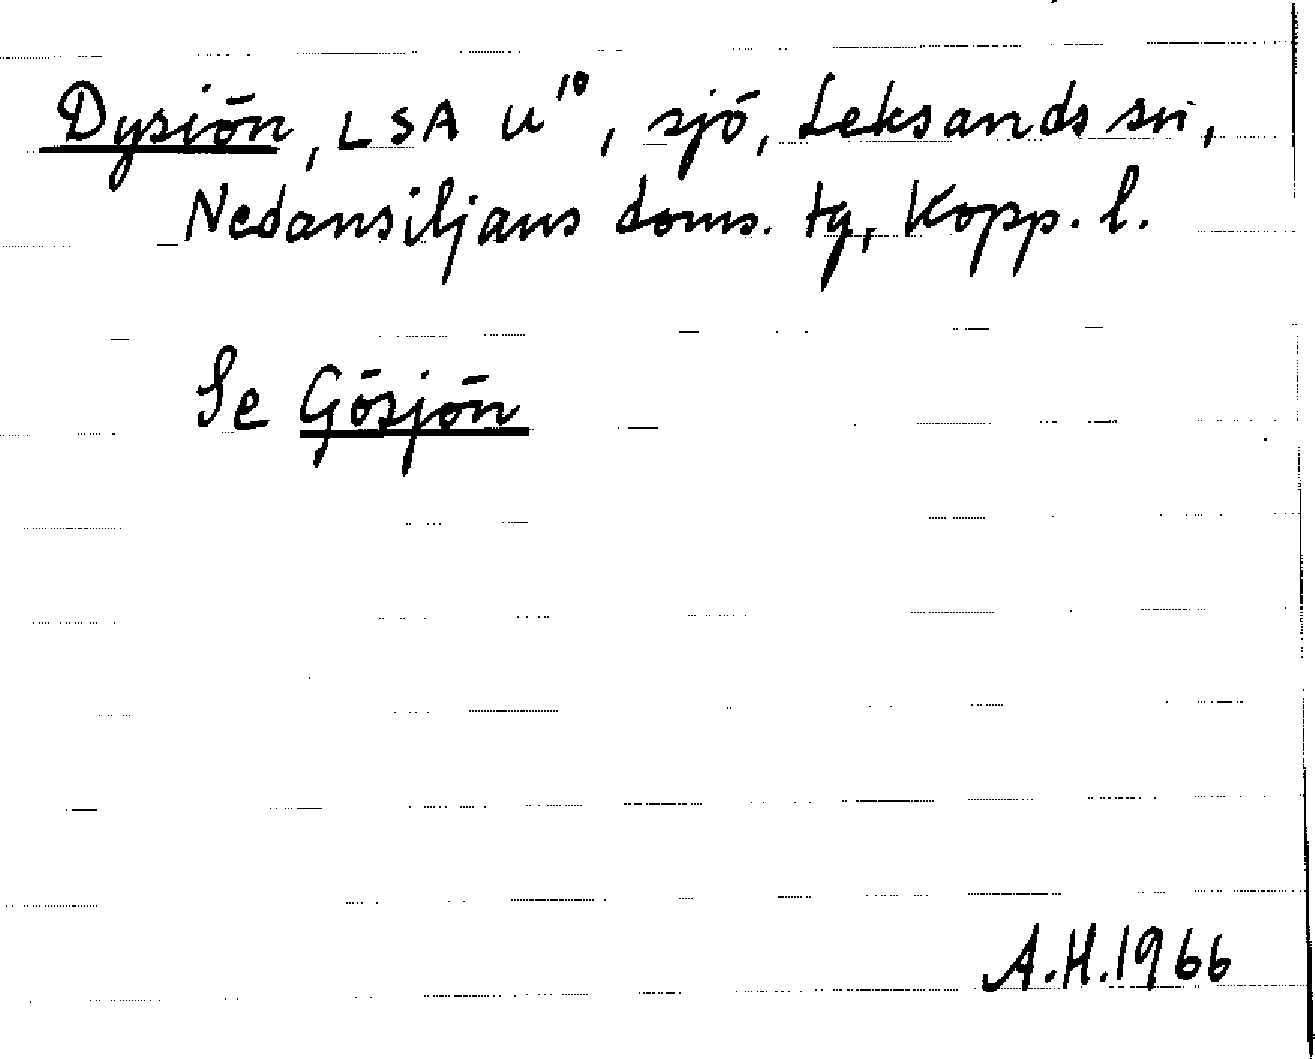 Dysiön, LSA U¹⁰, sjö, Leksands sn,
Nedansiljans doms. tg, Kopp. l.
Se Gösjön
A.H.1966